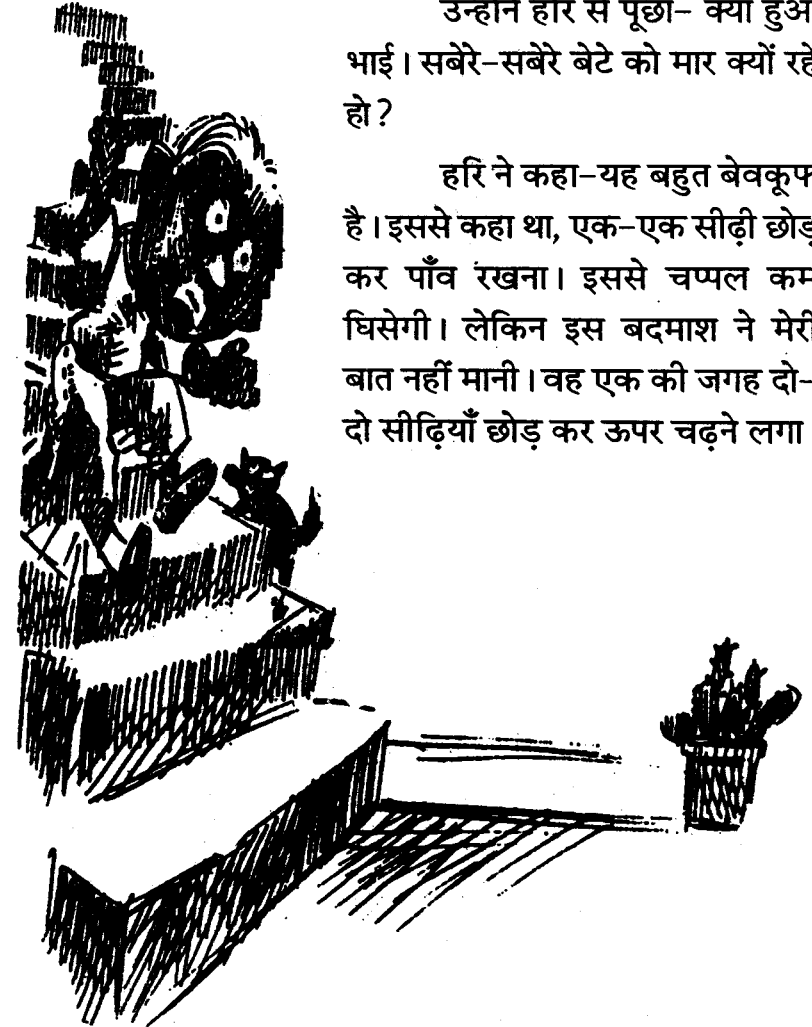 उन्होंने हरि से पूछा– क्या हुआ
भाई। सबेरे–सबेरे बेटे को मार क्यों रहे
हो?
हरि ने कहा–यह बहुत बेवकूफ
है। इससे कहा था, एक–एक सीढ़ी छोड़
कर पाँव रखना। इससे चप्पल कम
घिसेगी। लेकिन इस बदमाश ने मेरी
बात नहीं मानी। वह एक की जगह दो–
दो सीढ़ियाँ छोड़ कर ऊपर चढ़ने लगा